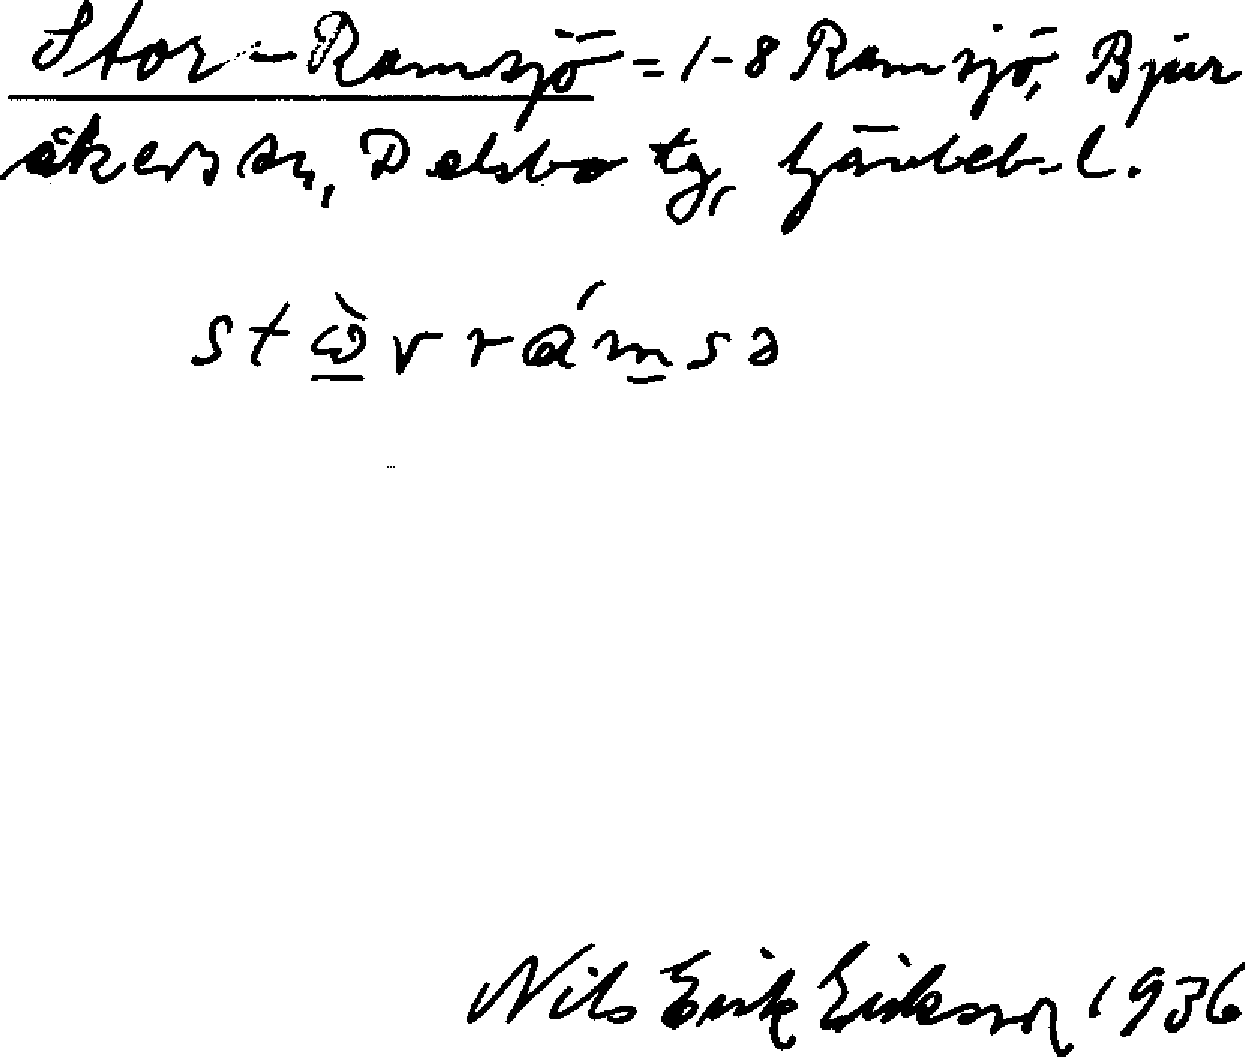 Stor-Ramsjö = 1-8 Ramsjö, Bjur
åkers sn, Delsbo tg, Gävleb. l.
stὼ̲v rám̲sə
Nils Erik Eriksson 1936